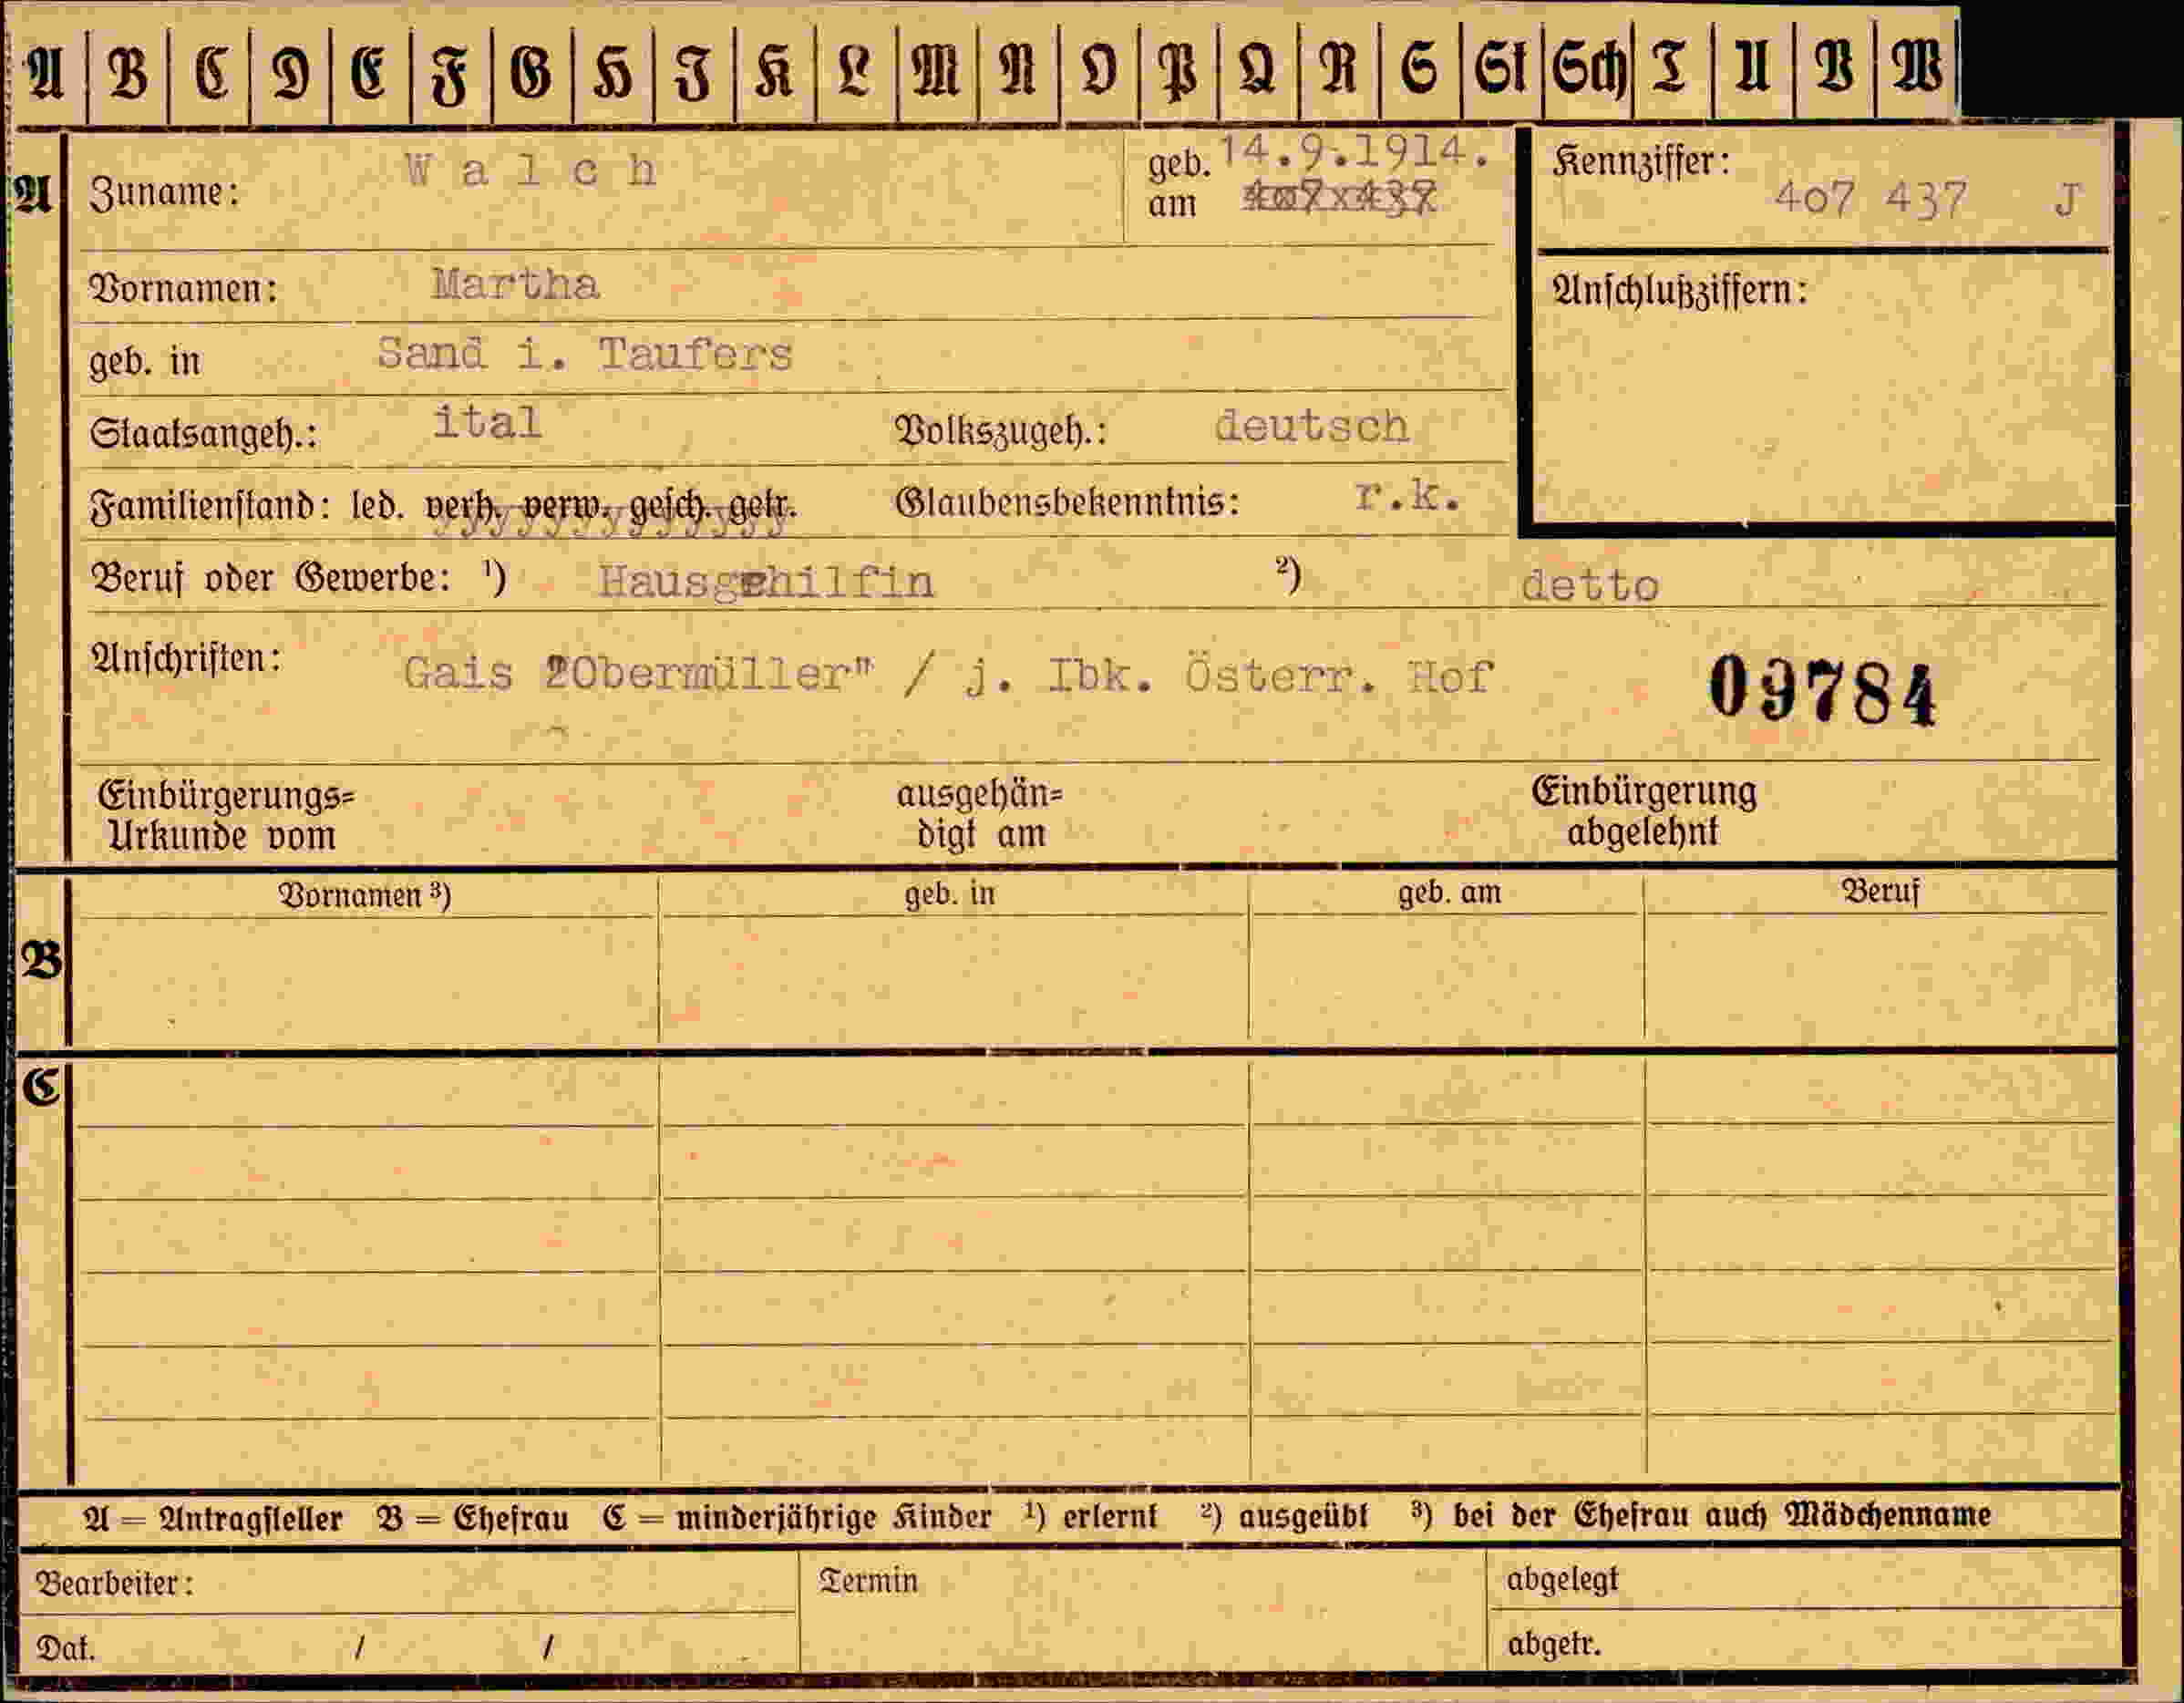 A B C D E F G H J K L M N O P Q R S St Sch T U V W
A Zuname: Walch geb. am 14.9.1914. 407x437
Kennziffer: 407 437 J
Vornamen: Martha
Anschlußziffern:
geb. in Sand i. Taufers
Staatsangeh.: ital Volkszugeh.: deutsch
Familienstand: led. verh. verw. gesch. getr. Glaubensbekenntnis: r.k.
Beruf oder Gewerbe: ¹) Hausgehilfin ²) detto
Anschriften: Gais "Obermüller" / j. Ibk. Österr. Hof 09784
Einbürgerungs= ausgehän= Einbürgerung
Urkunde vom digt am abgelehnt
Vornamen ³) geb. in geb. am Beruf
B
C
A = Antragsteller B = Ehefrau C = minderjährige Kinder ¹) erlernt ²) ausgeübt ³) bei der Ehefrau auch Mädchenname
Bearbeiter: Termin abgelegt
Dat. / / abgetr.